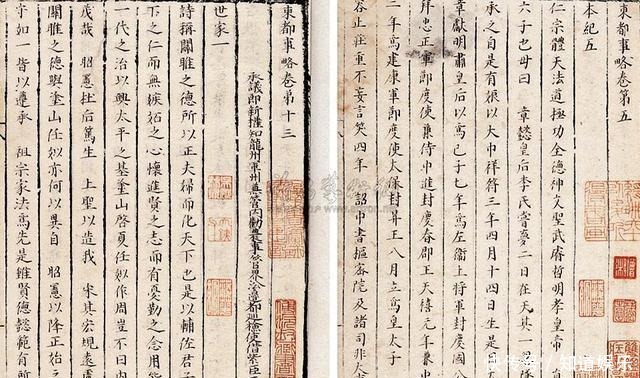 東都事略卷第五
本紀五
仁宗體天法道極功全德神文聖武睿哲明孝皇帝
六子也母曰 章懿皇后李氏嘗夢二日在天其一
承之自是有娠以大中祥符三年四月十四日生是
章獻明肅皇后以爲己子七年爲左衛上將軍封慶國
拜忠正軍節度使兼侍中進封壽春郡王天禧元年兼中
二年爲建康軍節度使太保封昇王八月立爲皇太子
容止莊重不妄言笑四年 詔中書樞密院及諸司非大
東都事略卷第十三
承議郎新權知龍州軍州兼管內勸農事管界沿邊都巡檢使借紫臣
世家一
詩稱關雎之德所以正夫婦而化天下也是以輔佐君子
下之仁而無嫉妬之心懷進賢之志而有憂勤之念用
一代之治以興太平之基塗山啓夏任姒作周豈不曰內
茂哉 昭憲杜后篤生 上聖以造我 宋其宏規遠慮
關雎之德與塗山任姒亦何以異自 昭憲以降正始之
守如一皆以遵承 祖宗家法爲先是雖賢德懿範有所
快传号/知道娱乐